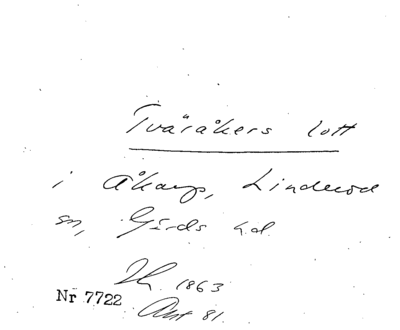 Tvåråkers lott
i Åkarp, Linderöd
sn, Gärds hd.
1863
Nr 7722
81.